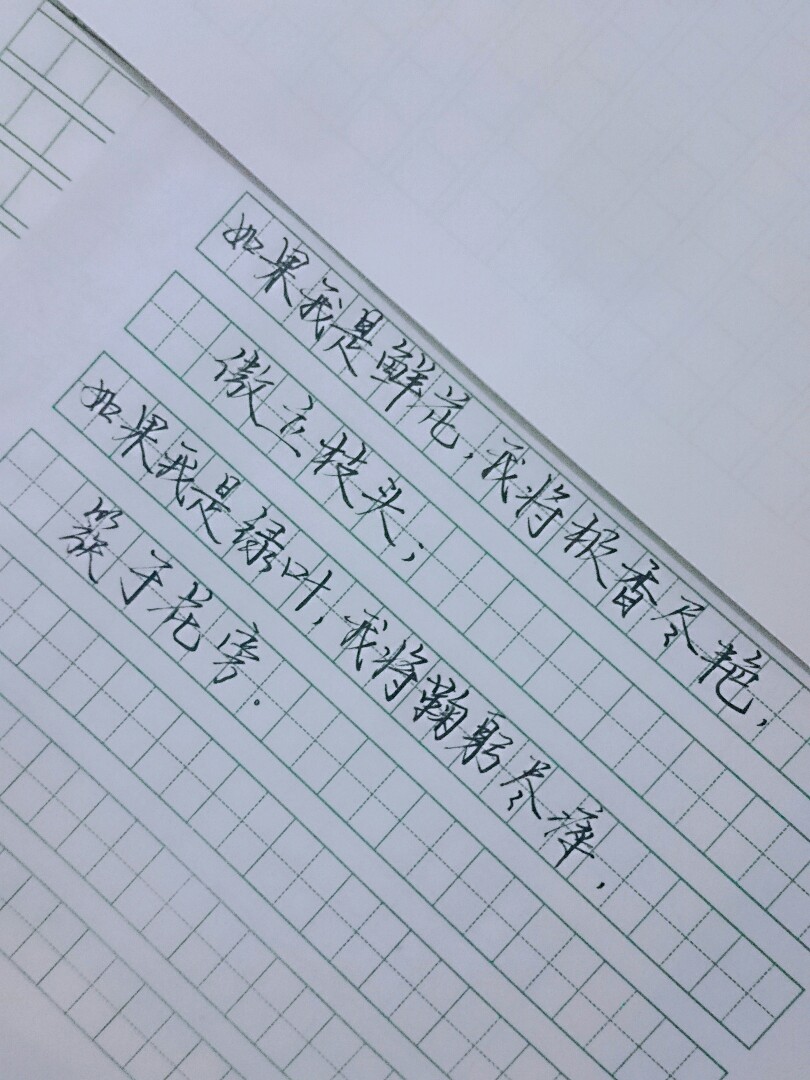 如果我是鲜花，我将极香尽艳，
傲立枝头；
如果我是绿叶，我将鞠躬尽瘁，
簇于花旁.